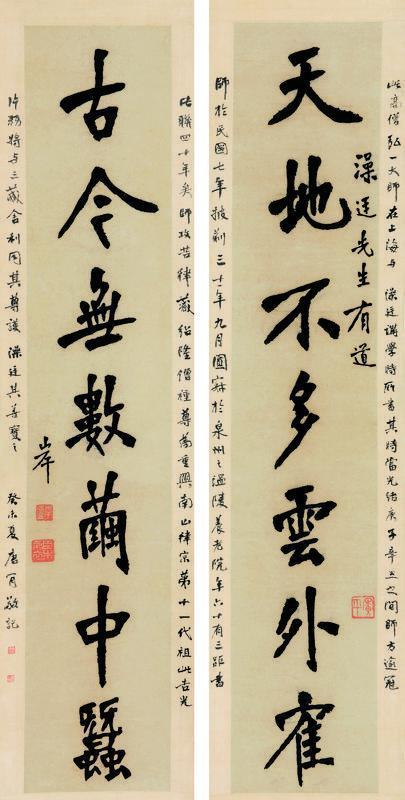 此高僧弘一大師在上海与澡廷講學時所書其時當光緒庚子辛丑之間師方逾冠
澡廷先生有道
天地不多雲外寉
師於民國七年披剃三十一年九月圓寂於泉州之溫陵養老院年六十有三距書
此聯四十年矣師攻苦律藏紹隆僧種尊為重興南山律宗第十一代祖此吉光
古今無數繭中蠶
岸
片羽將与三藏舍利同其尊護澡廷其善寶之癸未夏唐肯敬記